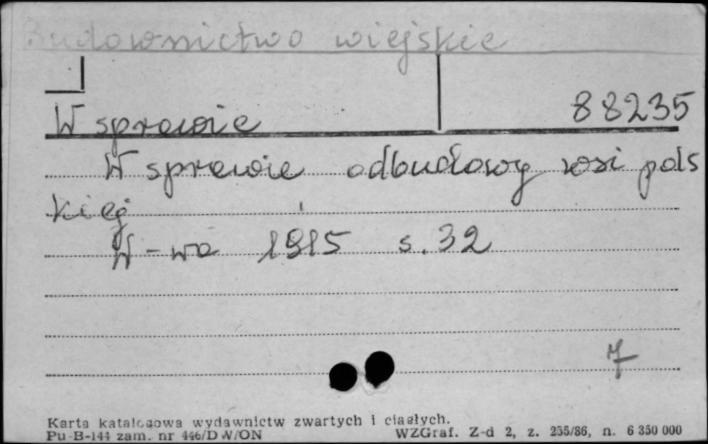 Budownictwo wiejskie
88235
W sprawie
W sprawie odbudowy wsi pols
kiej
W-wa 1915 s. 32
7
Karta katalogowa wydawnictw zwartych i ciągłych.
Pu-B-144 zam. nr 446/D W/ON WZGraf. Z-d 2, z. 255/86, n. 6 350 000